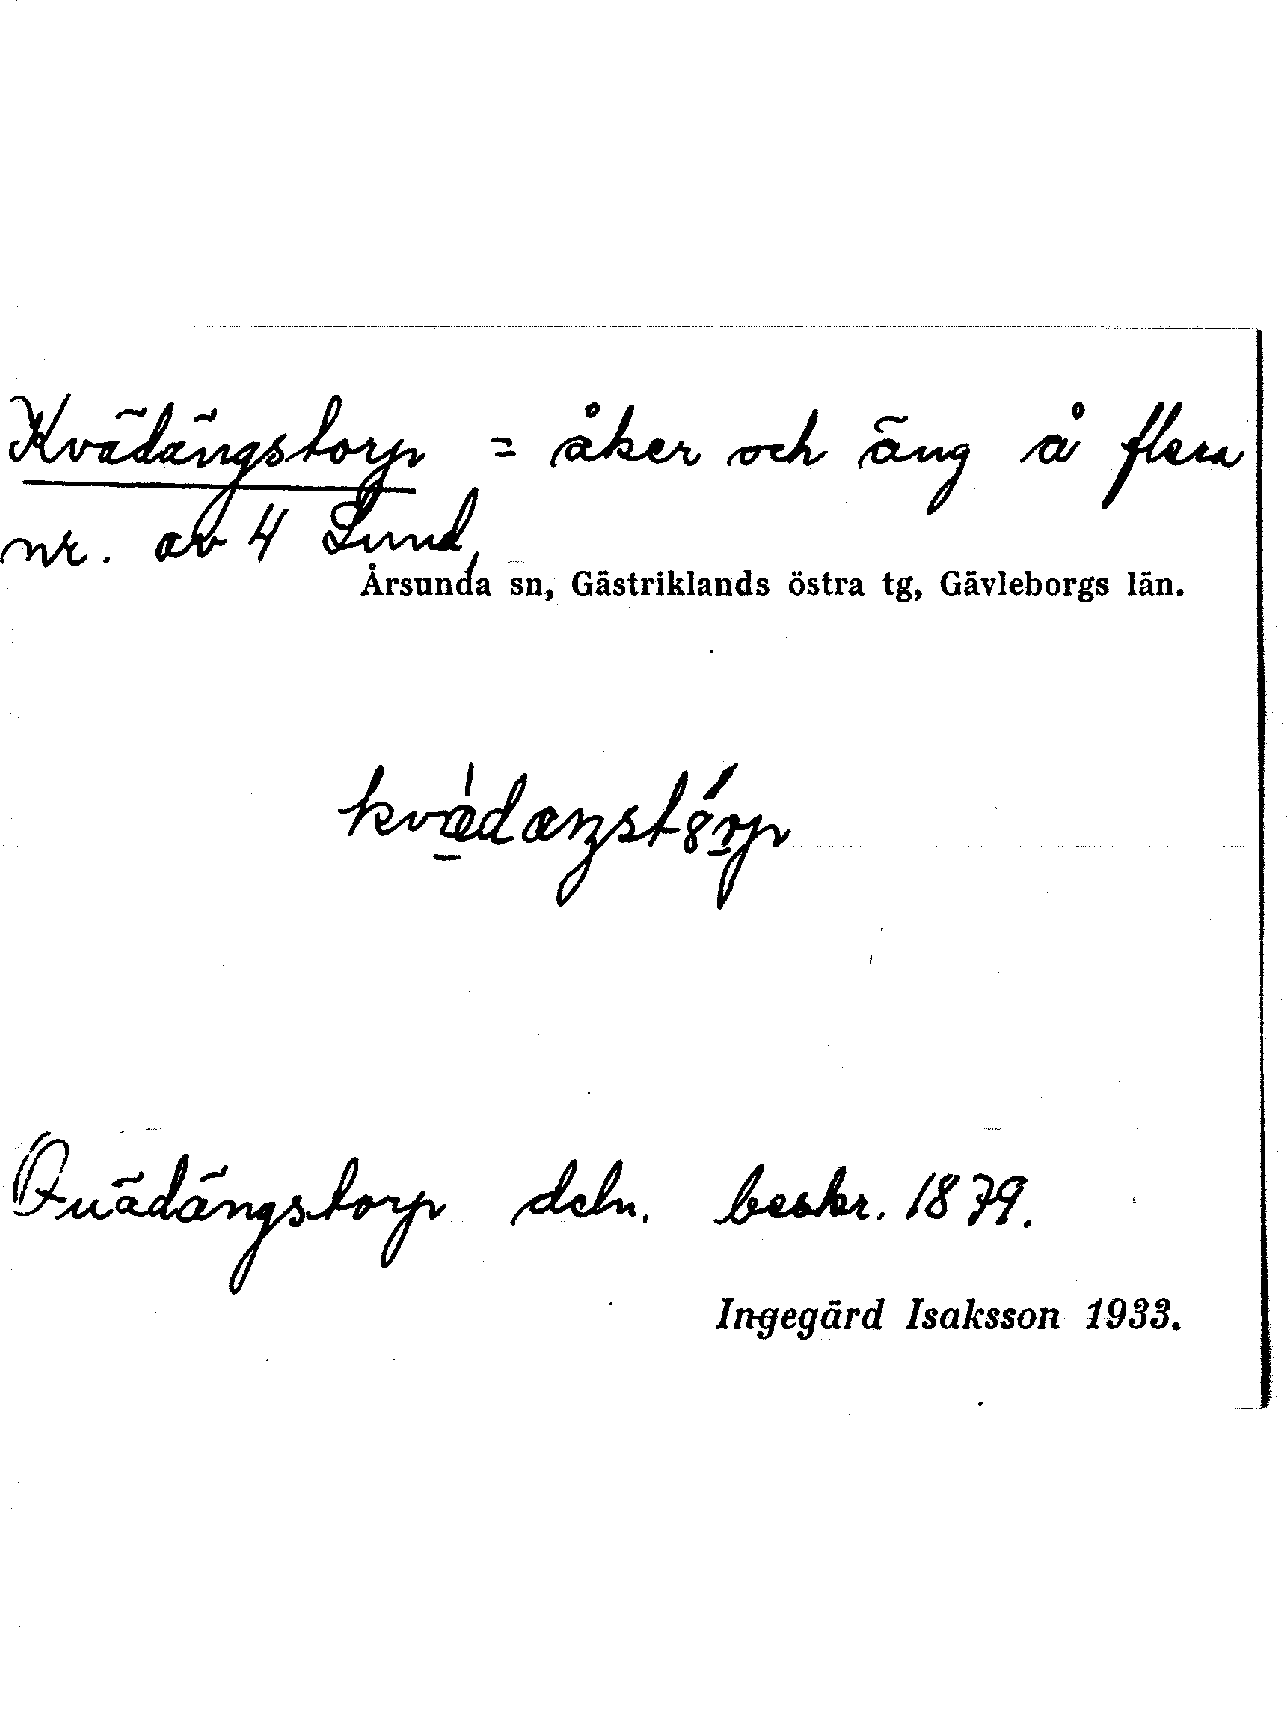 Kvädängstorp = åker och äng å flera
nr. av 4 Lund,
Årsunda sn, Gästriklands östra tg, Gävleborgs län.
kvæ̀dæŋst8́rp
Quädängstorp deln. beskr. 1879.
Ingegärd Isaksson 1933.